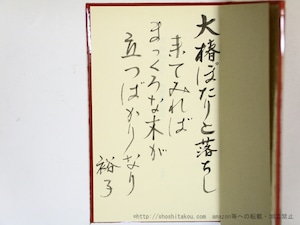 大椿ぽたりと落ちし
来てみれば
まっくろな木が
立つばかりなり
裕子
©http://shoshitakou.com amazon等への転載・加工禁止